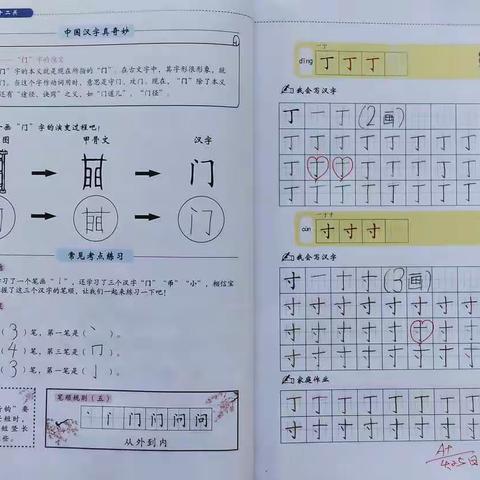 十二关
中国汉字真奇妙
“门”字的演变
门”字的本义就是现在所指的“门”。在古文字中，其字形很形象，就
。当这个字作动词用时，意思是守门、攻门。现在，“门”除了本义
还有“途径、诀窍”之义，如“门道儿”、“门径”。
画“门”字的演变过程吧！
图 甲骨文 汉字
门
门
常见考点练习
习了一个笔画“亅”，还学习了三个汉字“门”“币”“小”，相信宝
握了这三个汉字的笔顺，让我们一起来练习一下吧！
（3）笔，第一笔是（丶）。
（4）笔，第三笔是（冂）。
（3）笔，第一笔是（亅）。
笔顺规则（五）
丶 门 门 问 问
从外到内
钩”要
短时，
短竖长
些。
一丁
dīng 丁 丁 丁
我会写汉字
丁 一 丁 (2画)
丁 丁 丁 丁 丁 丁 丁 丁
丁 丁 丁 丁 丁 丁 丁 丁
丁 丁 丁 丁 丁 丁 丁 丁
一寸寸
cùn 寸 寸 寸
我会写汉字
寸 一 寸 寸 (3画)
寸 寸 寸 寸 寸 寸 寸 寸
寸 寸 寸 寸 寸 寸 寸 寸
寸 寸 寸 寸 寸 寸 寸 寸
家庭作业
丁 丁 丁 丁 丁 丁 丁 丁
寸 寸 寸 寸 寸 寸 寸 寸
A+
4.25日